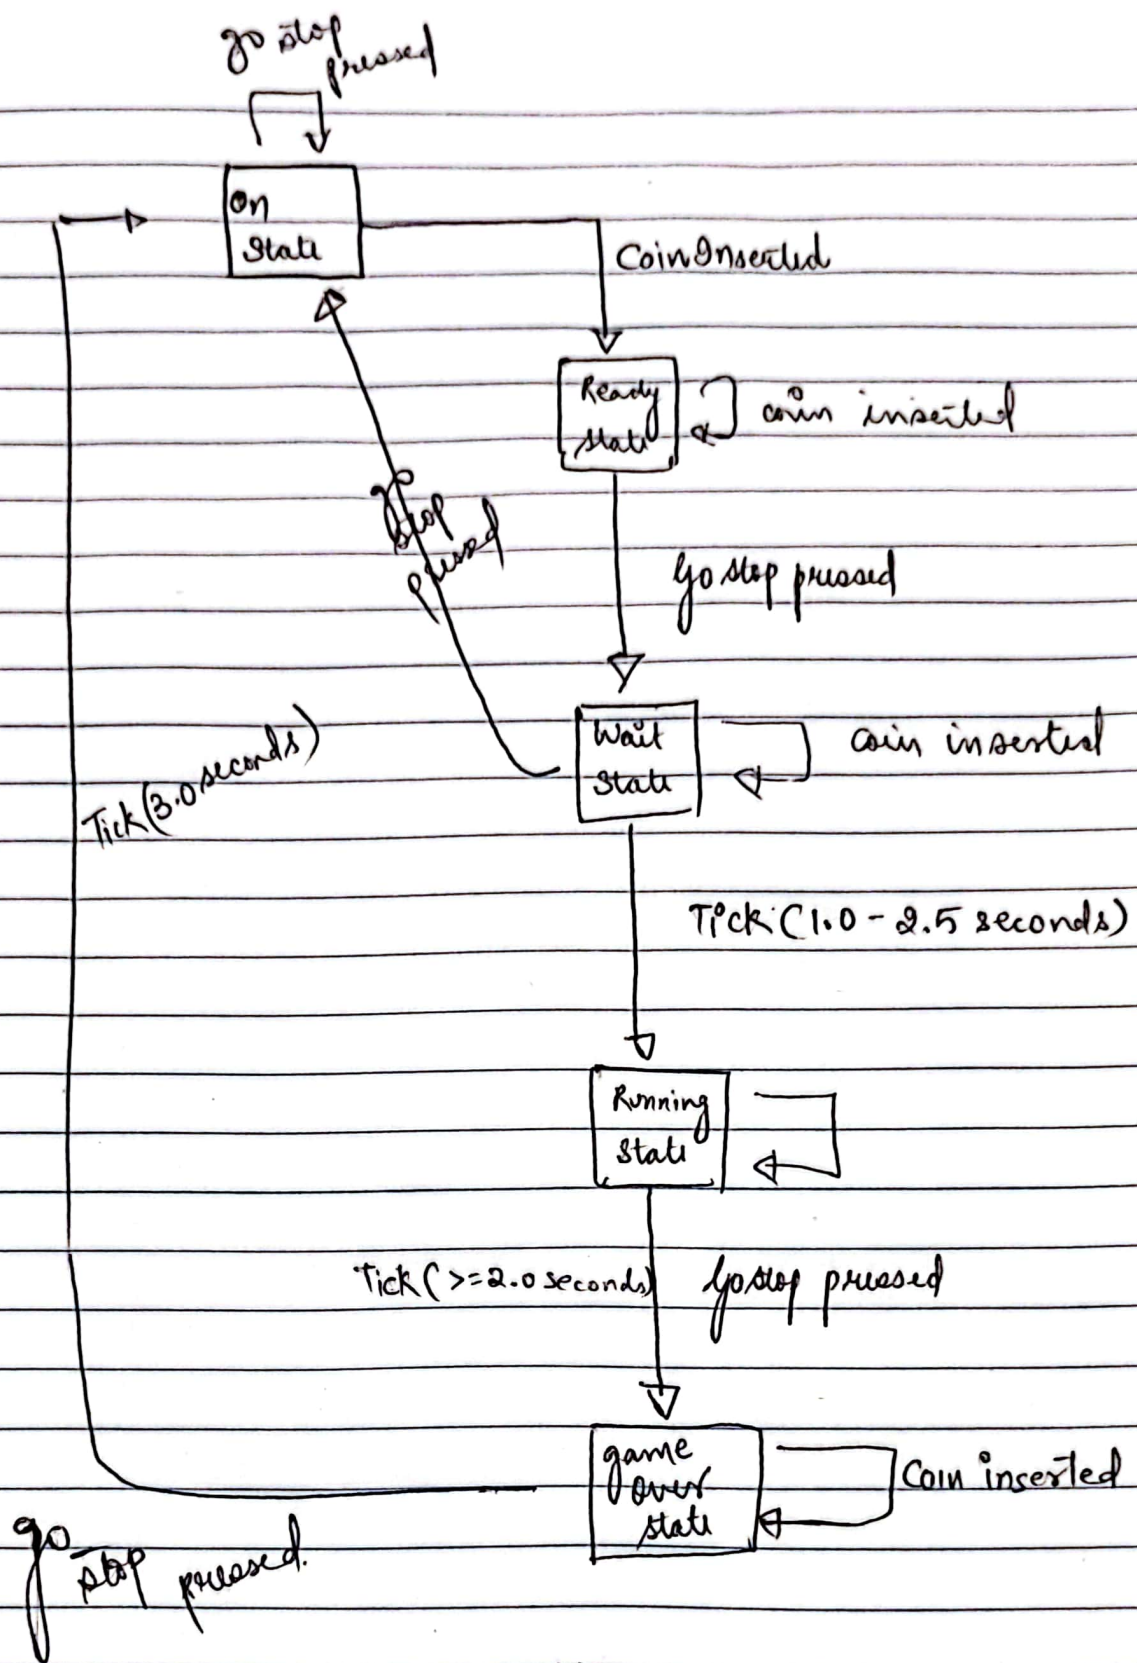 go stop
pressed
On
State
CoinInserted
Ready
state
coin inserted
go
stop
pressed
Go stop pressed
Wait
State
coin inserted
Tick(3.0 seconds)
Tick (1.0 - 2.5 seconds)
Running
State
Tick (>=2.0 seconds)
Go stop pressed
game
over
state
Coin inserted
go
stop pressed.